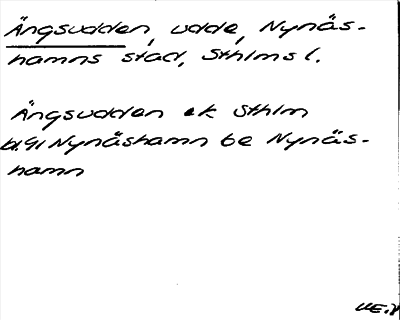 Ängsudden, udde, Nynäs-
hamns stad, Sthlms l.
Ängsudden ek Sthlm
bl. 91 Nynäshamn be Nynäs-
hamn